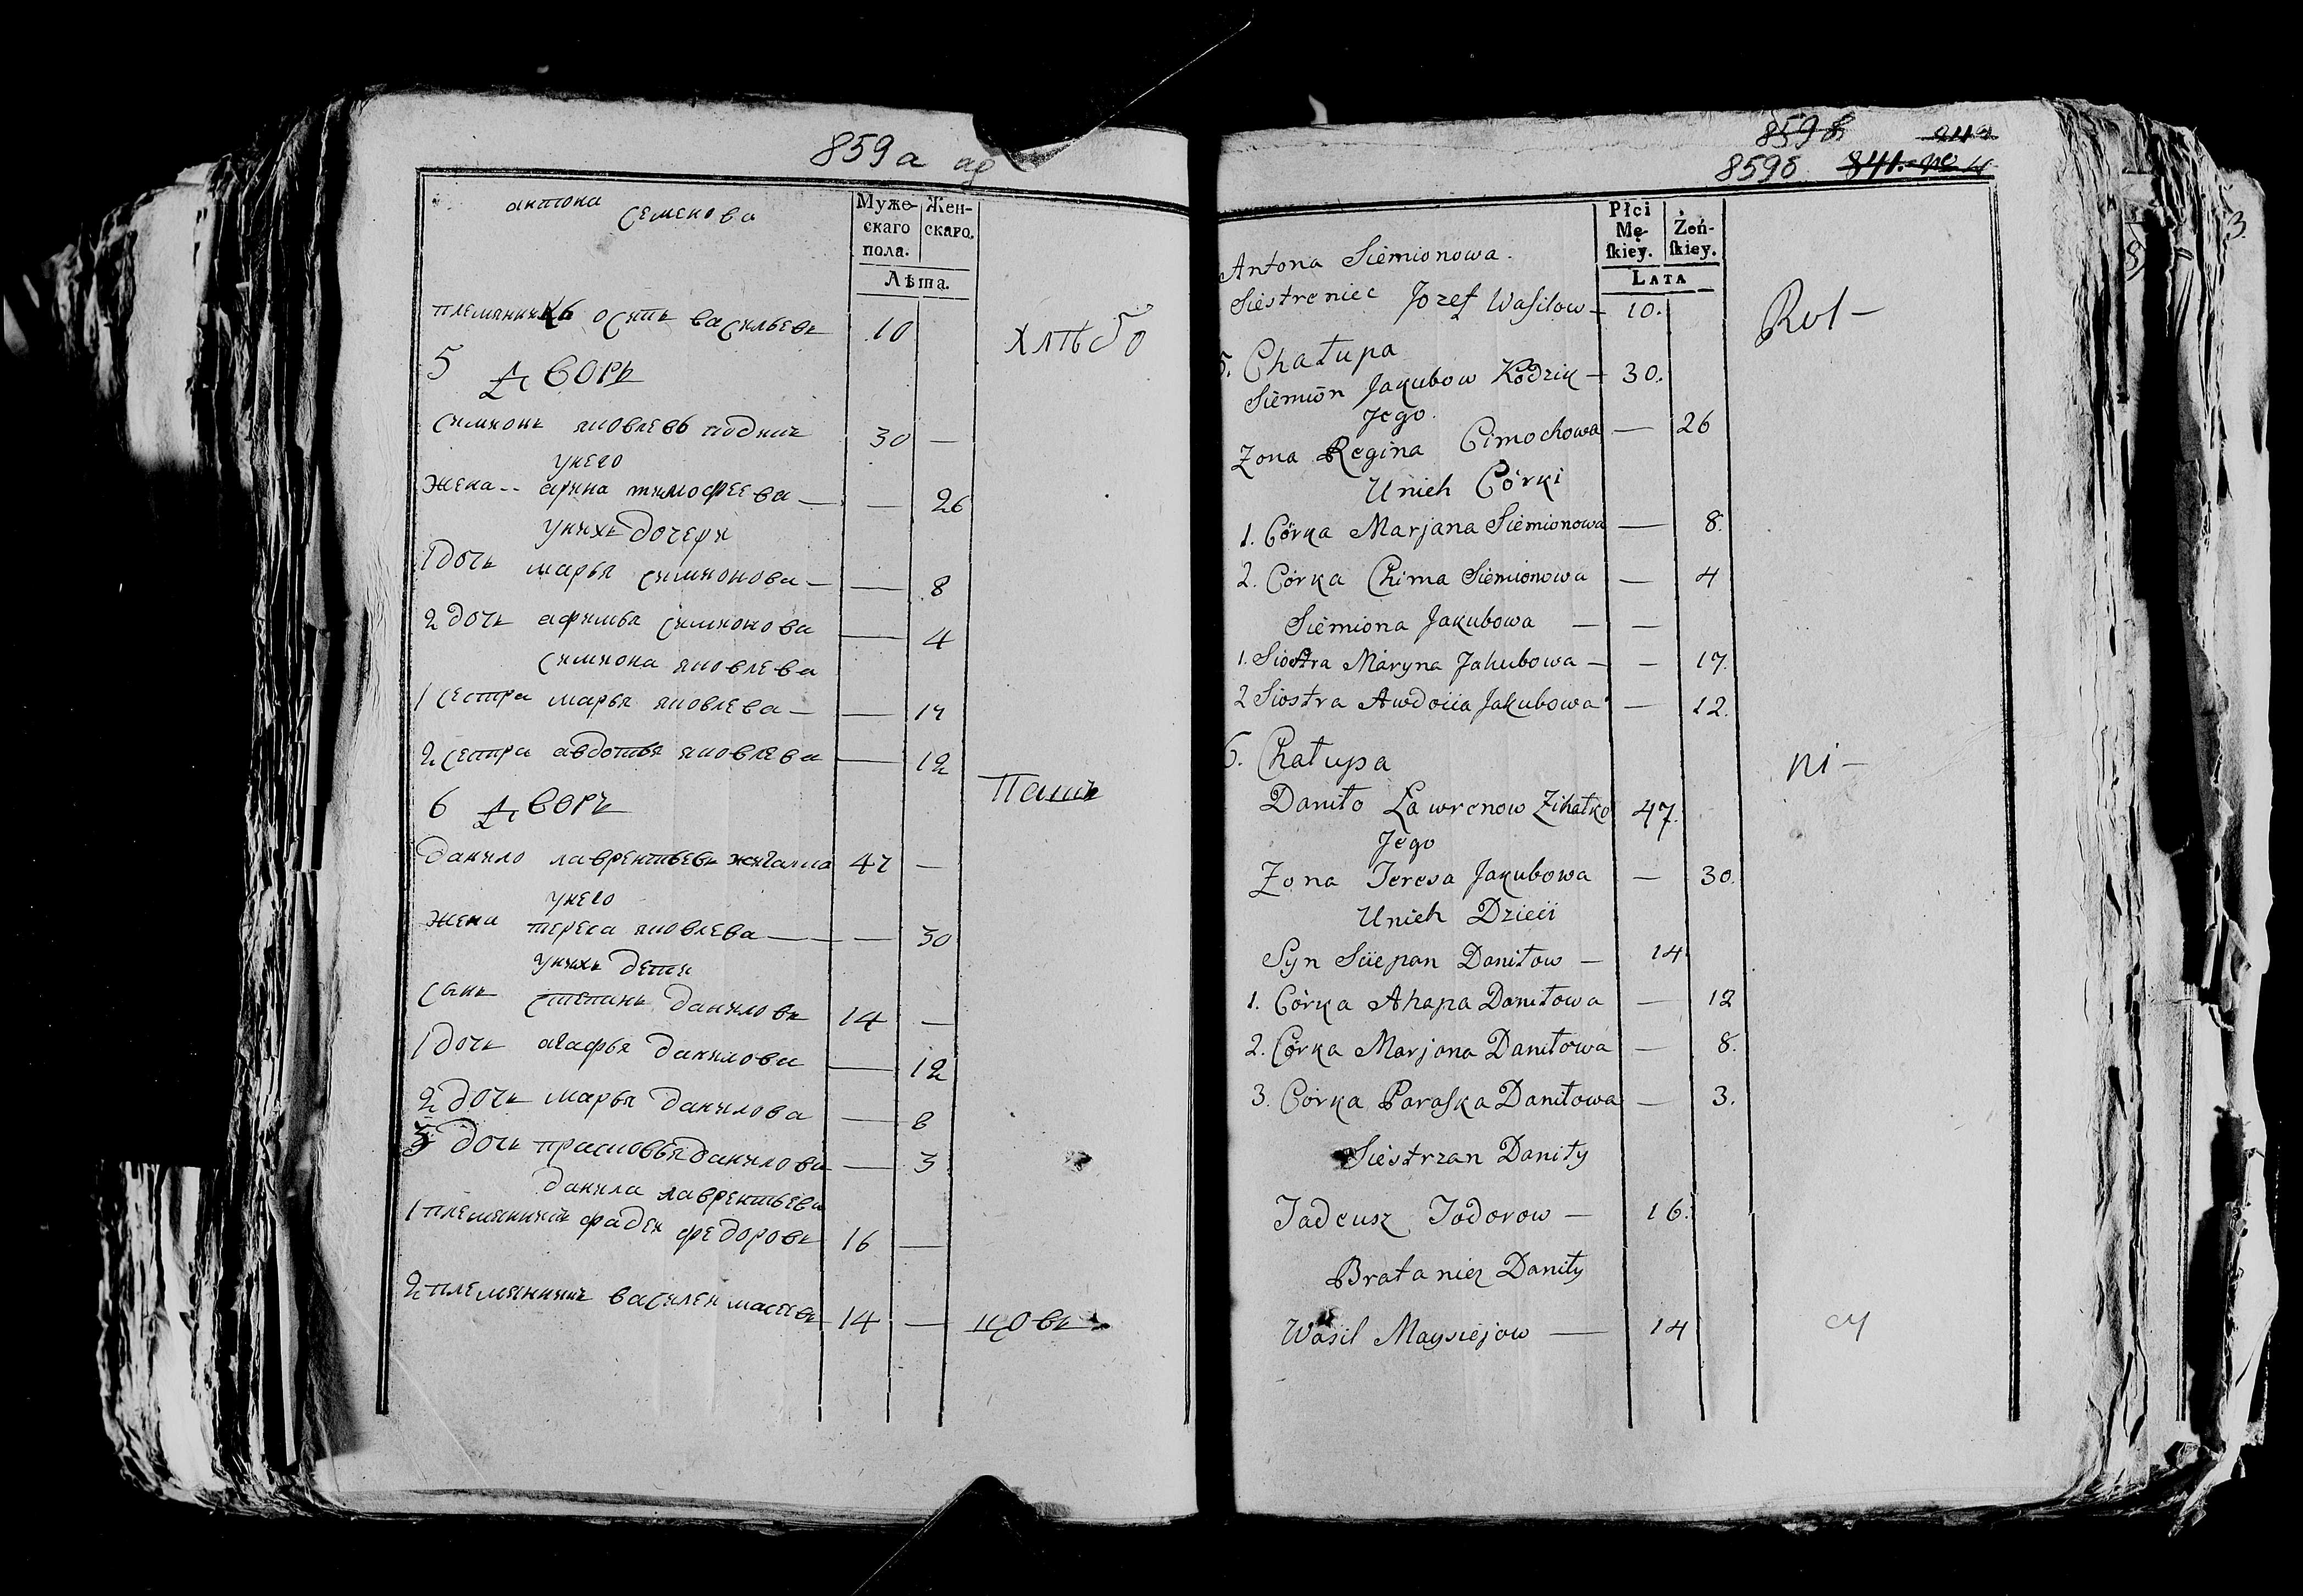 859а
антона
семенова
Муже-
скаго
пола.
Жен-
скаго.
Лѣта.
племянникъ осипъ васильевъ 10
хлѣбо
5 дворъ
симионъ яковлевъ кодзикъ 30 —
унего
жена -- арина тимофеева — — 26
унихъ дочери
1 дочь марья симионова — — 8
2 дочь афимья симионова — 4
симиона яковлева
1 сестра марья яковлева — — 17
2 сестра авдотья яковлева — 12
6 дворъ
Паш
данило лаврентьевъ жигалка 47 —
унего
жена тереса яковлева — — 30
унихъ дети
сынъ степанъ даниловъ 14 —
1 дочь агафья данилова — 12
2 дочь марья данилова — 8
3 дочь прасковья данилова — 3
данила лаврентьева
1 племянникъ фадей федоровъ 16 —
2 племянникъ василей 14 —
859б
859б
Płci
Mę-
ſkiey.
Żeń-
ſkiey.
Lata
Antona Siemionowa.
Siestreniec Jozef Wasilow — 10.
Rol—
5. Chałupa
Siemion Jakubow Kodzik — 30.
Jego
Zona Regina Cimochowa — 26
Unich Córki
1. Córka Marjana Siemionowa — 8.
2. Córka Chima Siemionowa — 4
Siemiona Jakubowa — —
1. Siostra Maryna Jakubowa — — 17.
2 Siostra Awdoiia Jakubowa — 12.
6. Chałupa
ni—
Daniło Ławrenow Zihałko 47.
Jego
Zona Teresa Jakubowa — 30.
Unich Dzieci
Syn Sciepan Daniłow — 14
1. Córka Ahapa Daniłowa — 12
2. Córka Marjana Daniłowa — 8.
3. Córka Paraſka Daniłowa — 3.
Siestrzan Daniły
Tadeusz Todorow — 16.
Brataniez Daniły
Wasil Maysiejow — 14
cy